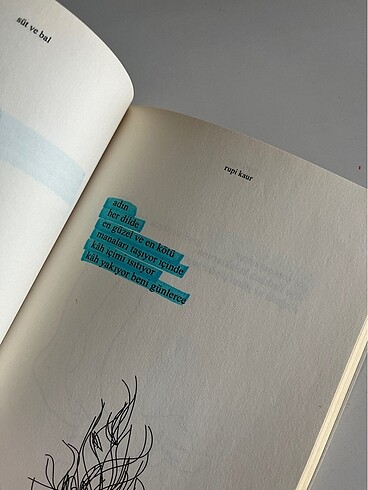 süt ve bal
rupi kaur
adın
her dilde
en güzel ve en kötü
manaları taşıyor içinde
kâh içimi ısıtıyor
kâh yakıyor beni günlerce